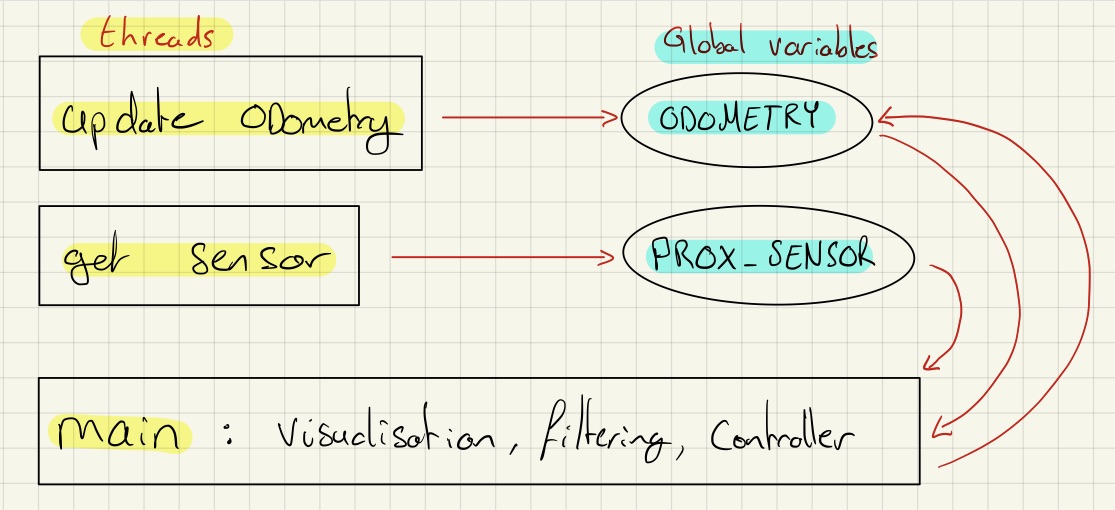 threads
Global variables
update ODometry
ODOMETRY
get sensor
PROX_SENSOR
main : Visualisation, filtering, Controller